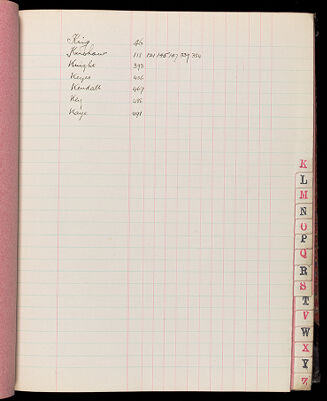 King 46
Kershaw 112 121 145 147 339 354
Knight 393
Keyes 456
Kendall 467
Key 485
Kaye 491
K
L
M
N
O
P
Q
R
S
T
V
W
X
Y
Z